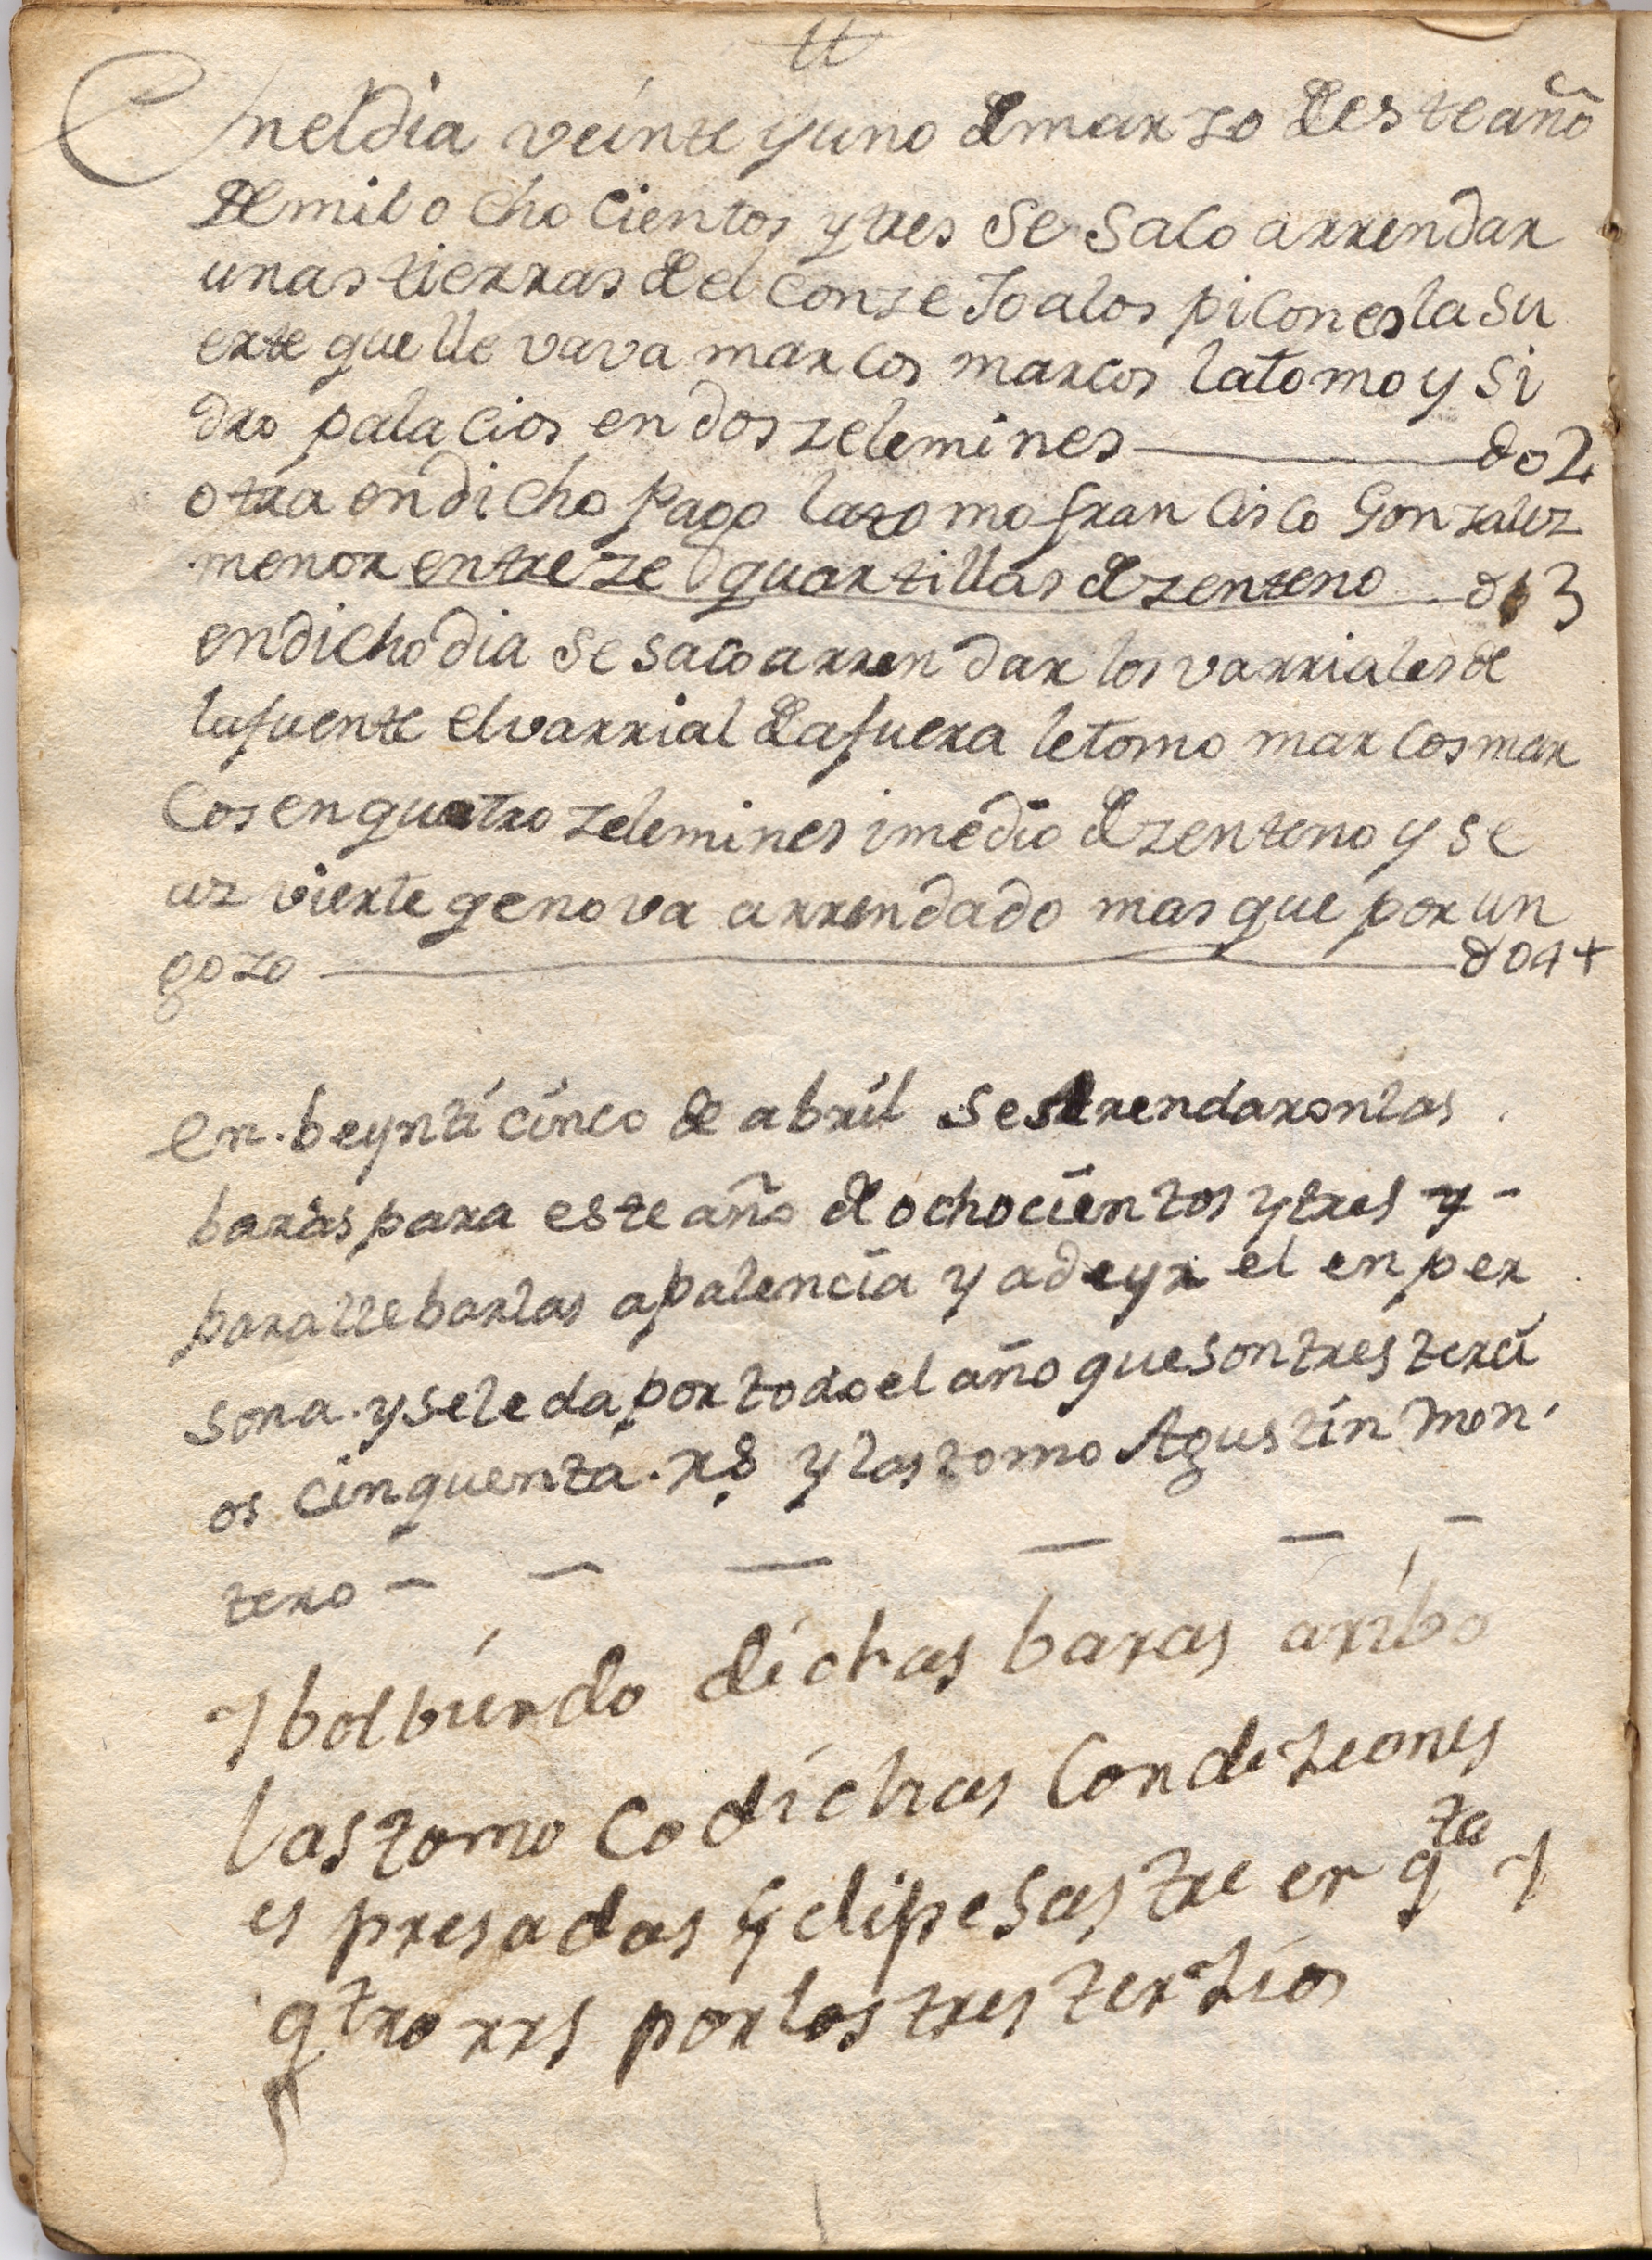 tt
En el dia veinte y uno de marzo deste año
de mil ochocientos y tres se saco arrendar
unas tierras del conzeJo a los picones la su
erte que llevava marcos marcos la tomo y Si
dro palacios en dos zelemines do2
otra en dicho pago la tomo francisco Gonzalez
menor en treze quartillas de zenteno d13
en dicho dia se saco arrendar los varriales de
la fuente el varrial de afuera le tomo marcos mar
Cos en quatro zelemines i medio de zenteno y se
az vierte qe no va arrendado mas que por un
gozo do4+
en beynti cinco de abril se Arendaron las
baras para este año de ochocientos y tres y
para llebarlas a palencia y a de yr el en per
sona. y se le da por todo el año que son tres terci
os cinquenta. rs y las tomo Agustin mon
tero
y bolbiendo dichas baras ariba
las tomo co dichas Condiziones
espresadas felipe Sastre en qta y
qtro rrs por los tres terzios